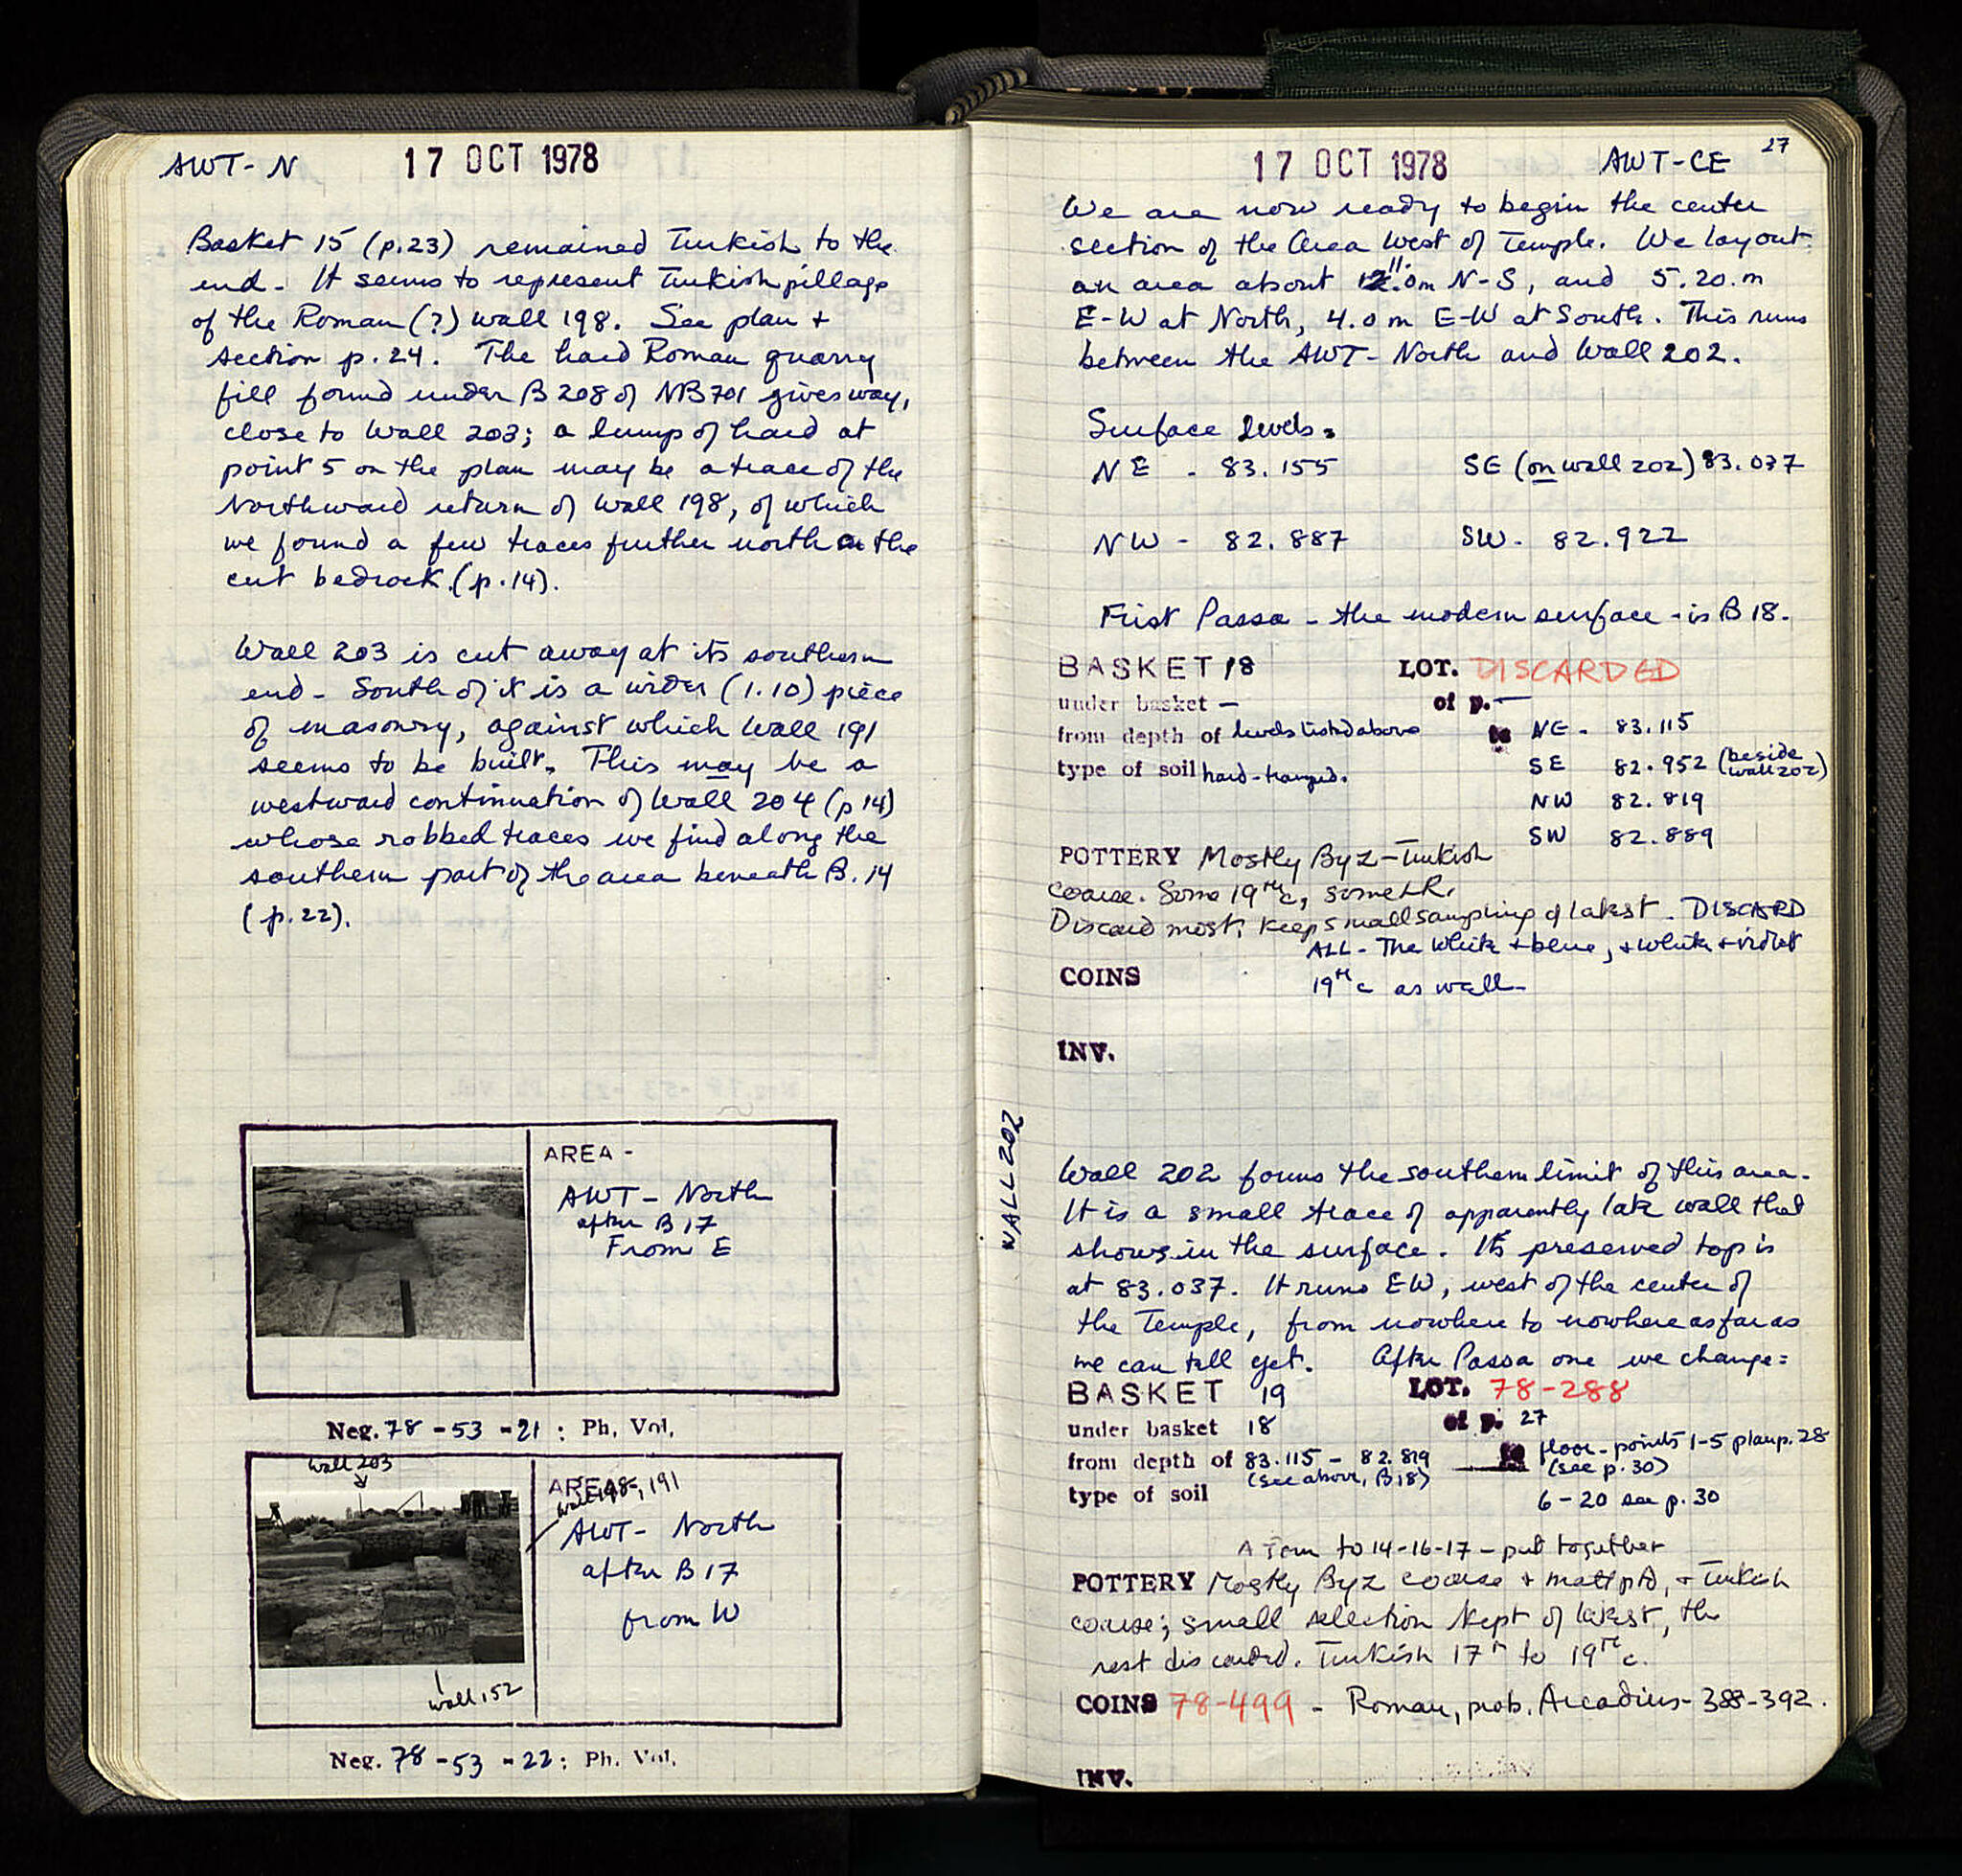 AWT-N 17 OCT 1978
Basket 15 (p.23) remained Turkish to the
end. It seems to represent Turkish pillage
of the Roman (?) wall 198. See plan +
section p.24. The hard Roman quarry
fill found under B 208 of NB 701 gives way,
close to Wall 203; a lump of hard at
point 5 on the plan may be a trace of the
Northward return of Wall 198, of which
we found a few traces further north on the
cut bedrock. (p.14).
Wall 203 is cut away at its southern
end. South of it is a wider (1.10) piece
of masonry, against which Wall 191
seems to be built. This may be a
westward continuation of Wall 204 (p 14)
whose robbed traces we find along the
southern part of the area beneath B. 14
(p.22).
AREA -
AWT - North
after B 17
From E
Neg. 78-53-21 : Ph. Vol.
Wall 203
AREA-
Wall 198, 191
AWT- North
after B 17
from W
Wall 152
Neg. 78-53-22: Ph. Vol.
17 OCT 1978 AWT-CE 27
We are now ready to begin the center
section of the Area West of Temple. We lay out
an area about 11.0m N-S, and 5.20.m
E-W at North, 4.0 m E-W at South. This runs
between the AWT- North and Wall 202.
Surface levels:
NE - 83.155 SE (on wall 202) 83.037
NW - 82.887 SW- 82.922
First Passa - the modern surface - is B 18.
BASKET 18 LOT. DISCARDED
under basket — of p. —
from depth of levels listed above to NE - 83.115
SE 82.952 (beside wall 202)
type of soil hard-tramped.
NW 82.819
SW 82.889
POTTERY Mostly Byz-Turkish
coarse. Some 19th c, some LR.
Discard most; keep small sampling of latest. DISCARD
ALL - The white + blue, + white + violet
19th c as well-
COINS
INV.
WALL 202
Wall 202 forms the southern limit of this area.
It is a small trace of apparently late wall that
shows in the surface. Its preserved top is
at 83.037. It runs EW, west of the center of
the Temple, from nowhere to nowhere as far as
we can tell yet. After Passa one we change:
BASKET 19 LOT. 78-288
under basket 18 of p. 27
from depth of 83.115 - 82.819 to floor - points 1-5 plan p. 28
(see above, B18) (see p.30)
type of soil 6-20 see p. 30
A join to 14-16-17 - put together
POTTERY Mostly Byz coarse + matt ptd, + Turkish
coarse; small selection kept of latest, the
rest discarded. Turkish 17th to 19th c.
COINS 78-499 - Roman, prob. Arcadius - 388-392.
INV.